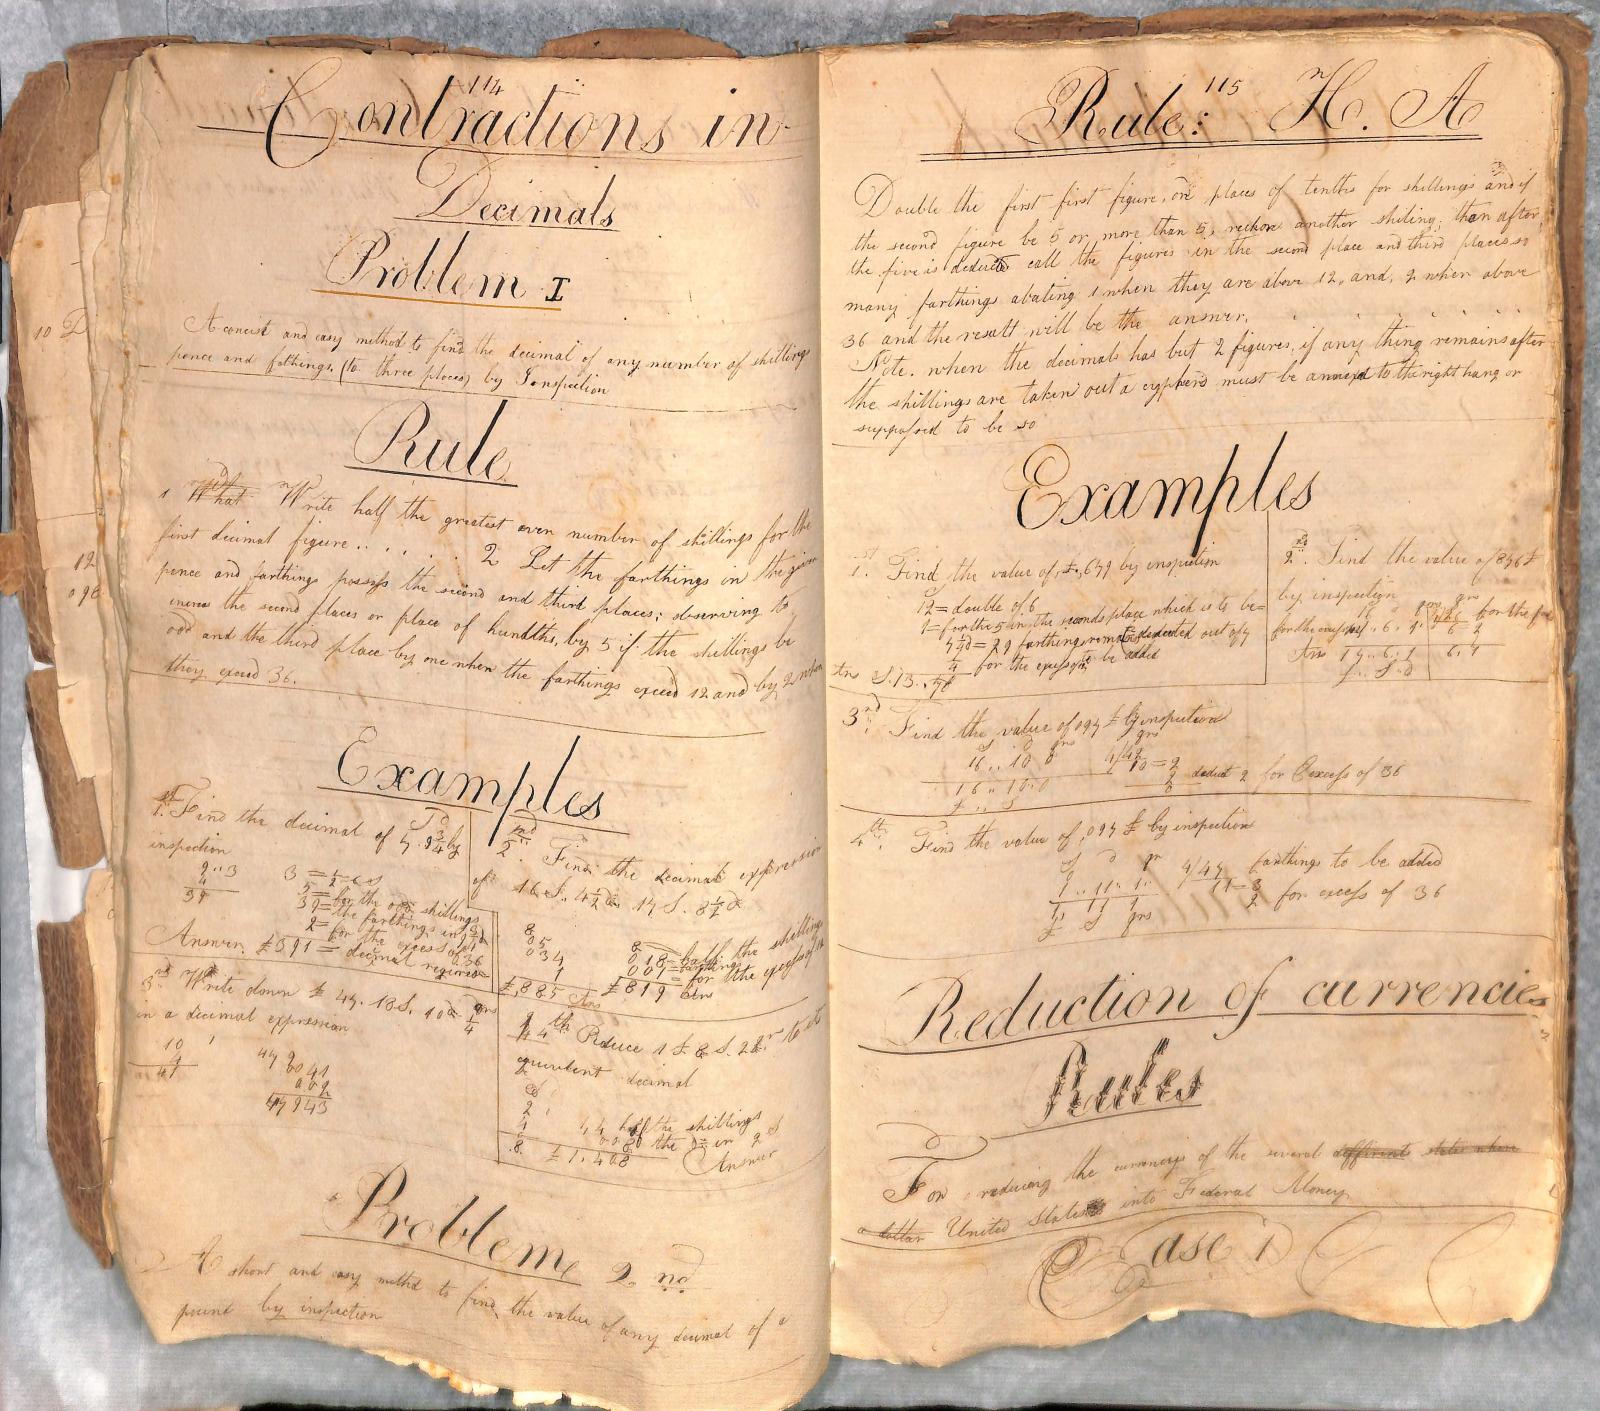 114
Contractions in
Decimals
Problem I
A concist and easy method to find the decimal of any number of shillings
pence and fathings, (to three places) by Inspection
Rule
1 What Write half the greatest even number of shillings for the
first decimal figure . . . . . . 2 Let the farthings in the given
pence and farthings possess the second and third places; observing to
increas the second places or place of hundths, by 5 if the shillings be
odd and the third place by one when the farthings exceed 12 and by 2 when
they exceed 36.
Examples
1st. Find the decimal of 7. 9 3/4 by
inspection
S D
9..3
4
39
3 = 1/2 6 s
5 = for the odd shillings
39 = the farthings in 9 3/4 d
2 = for the excess of 36
Answer. £391 = decimal required
2nd. Find the decimal expression
of 16 S. 4 1/2 17 S. 8 1/2 d
8
05
034
1
£,885 Ans
8 = half the shillings
018 = farthings
001 = for the excess of 12
£819 Ans
3rd Write down £ 47. 18 S. 10 d 1/4 qrs
in a decimal expression
10 1
4
41
47 9
041
002
47 943
4th Reduce 1 £ 8 S. 2 to it
equivulent decimal
2
4
8.
1,4 half the shillings
008 the in 2
£ 1. 408 Answer
Problem 2 nd
A short and easy methd to find the value of any decimal of a
pound by inspection
115
Rule: H. A
Double the first first figure, or places of tenths for shillings and if
the second figure be 5 or more than 5, reckon another shiling; then after
the five is deducted call the figures in the second place and third places so
many farthings abating 1 when they are above 12, and, 2 when above
36 and the result will be the answer.
Note. when the decimals has but 2 figures, if any thing remains after
the shillings are taken out a cypherd must be annexed to the right hang or
supposed to be so
Examples
1st. Find the value of, £,679 by inspection
12 = double of 6
1 = for the 5 in the seconds place which is to be =
7 1/4 = 29 farthings remain deducted out of 7
1/4 for the excess to be added
Ans S.13..
2nd. Find the value of 876 £
by inspection
for the
Ans 17..6..1
6.1
3rd Find the value of 097 £ by inspection
S d qrs
16 .. 10 0
16 .. 10..0
£ .. S
4/42
10=2
2 deduct 2 for Excess of 36
4th. Find the value of ,097 £ by inspection
S d qr
1 .. 11.. 1..
1 11 1
£ S qrs
4/47 farthings to be added
11=3
2 for excess of 36
Reduction of currencies
Rules
For reducing the currencys of the several different states when
a dollar United States into Federal Money
Case 1
10 D
12
098